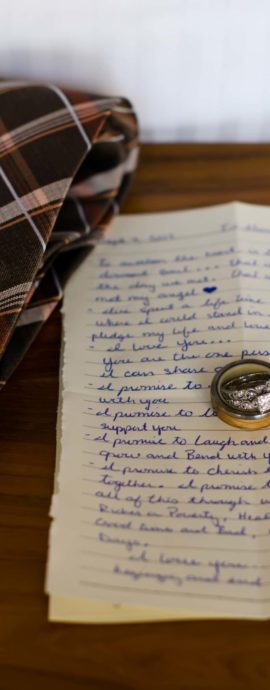 To awaken the
the day we met. that
met my angel ♥
- I've spent a life time
where I could stand in
pledge my life and love
- I love you...
You are the one pers
I can share
- I promise to
with you
- I promise to l
support you
- I promise to laugh and
grow and Bend with y
- I promise to cherish
together. I promise t
all of this through
Riches or Poverty, Heal
Good times and Bad,
Days.
I love you...